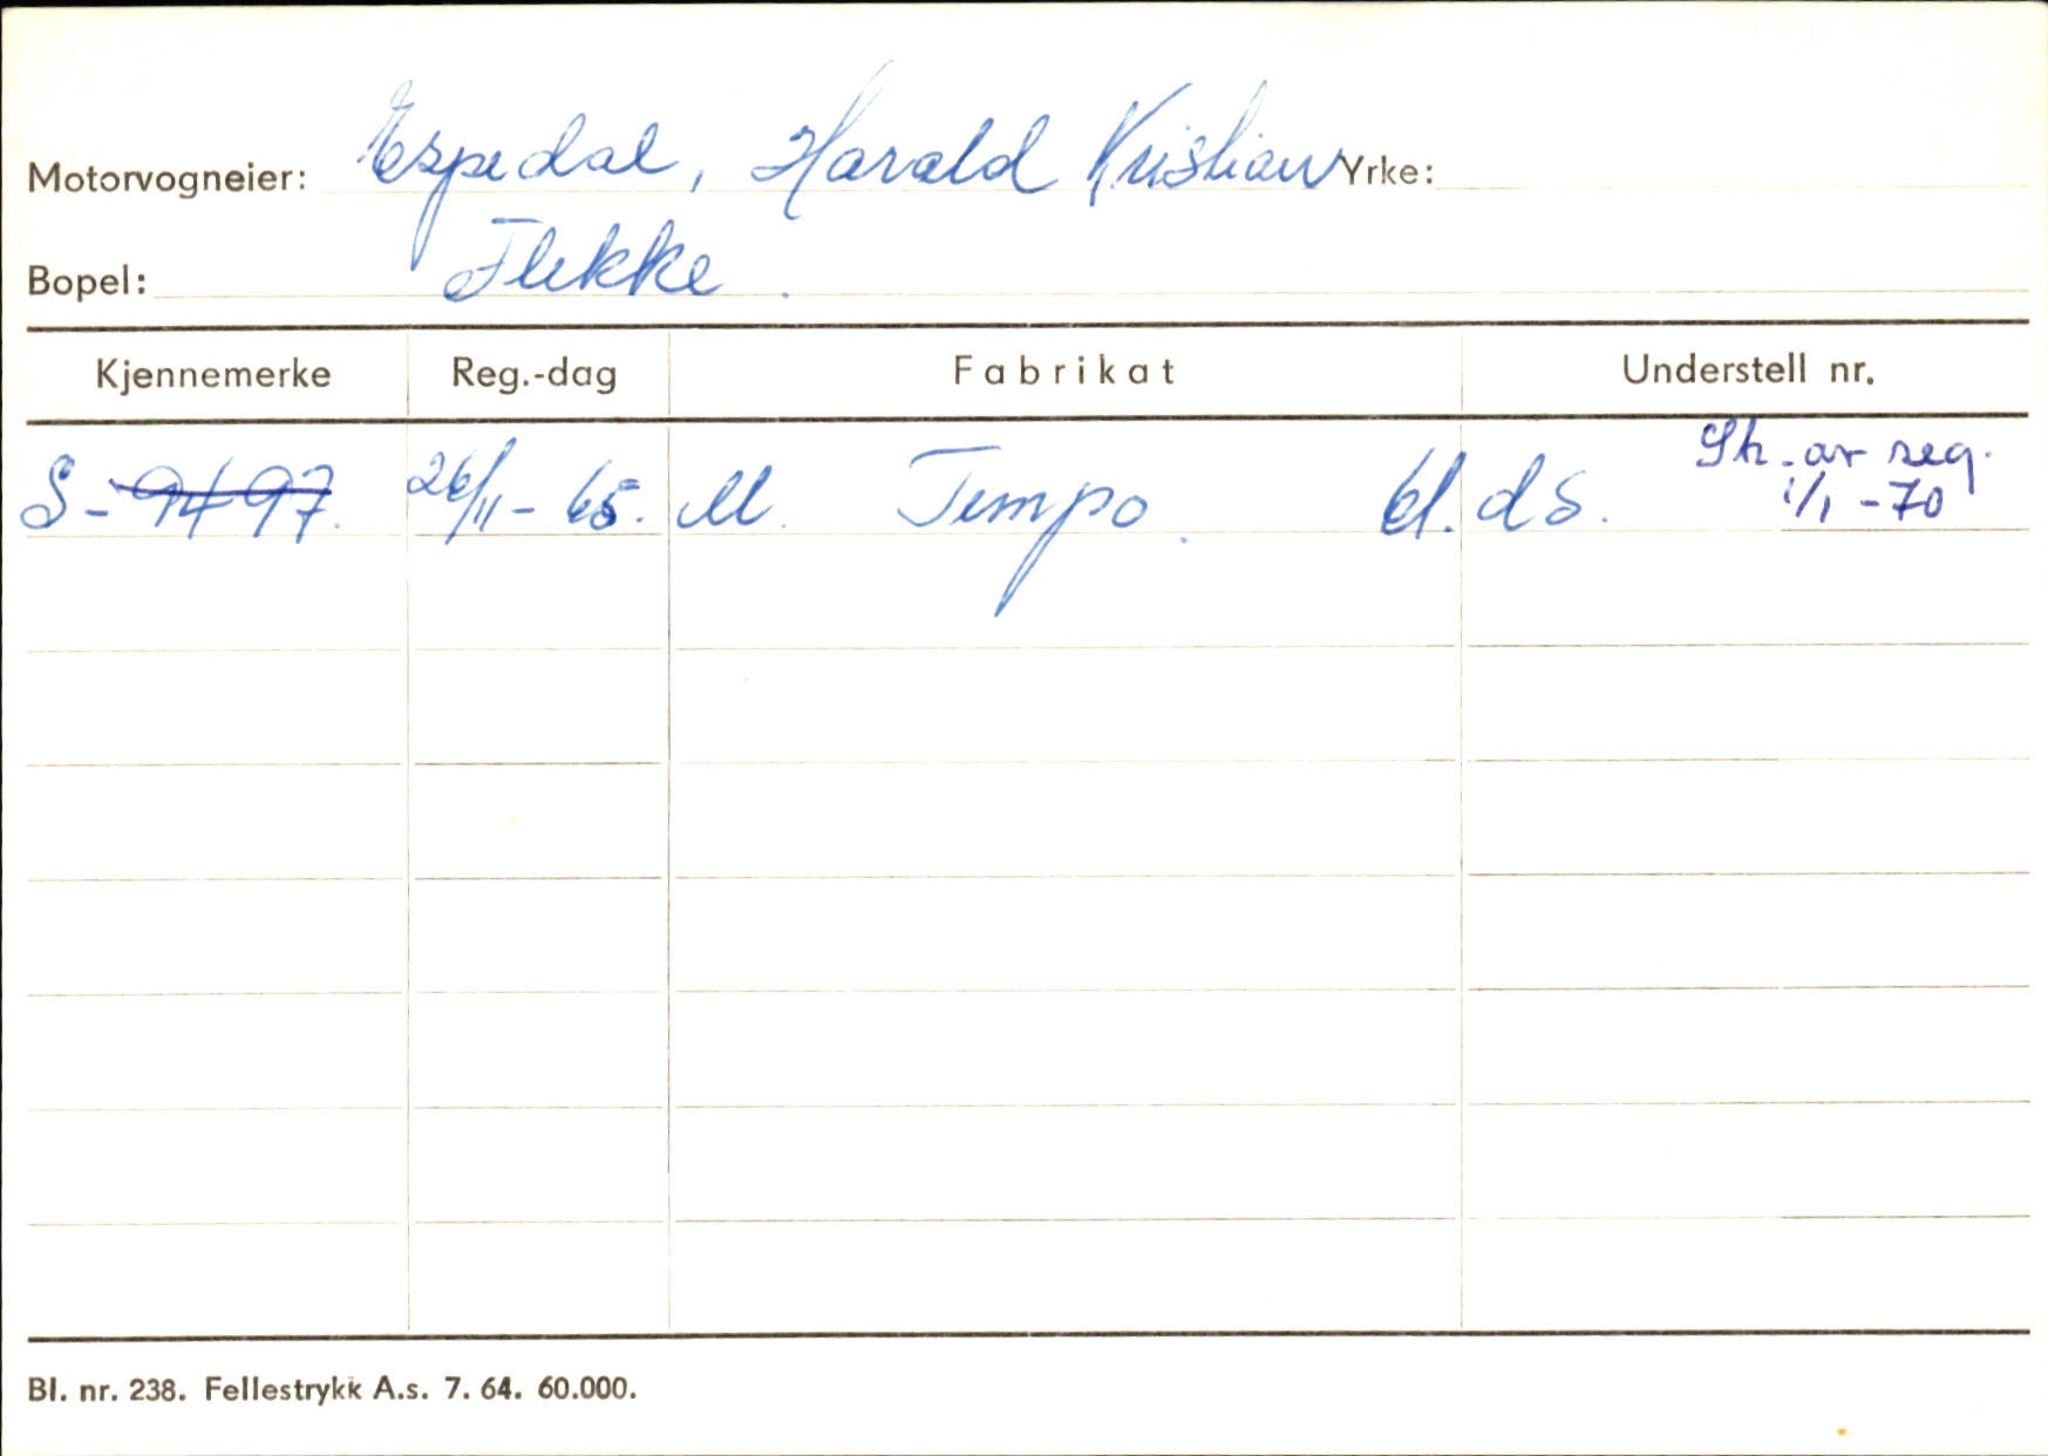 Motorvogneier: Espedal, Harald Kristian Yrke:
Bopel: Flekke.
Kjennemerke Reg.-dag Fabrikat Understell nr.
S-9497. 26/11-65. M. Tempo. bl. ds. Sl. av reg.
1/1-70
Bl. nr. 238. Fellestrykk A.s. 7. 64. 60.000.